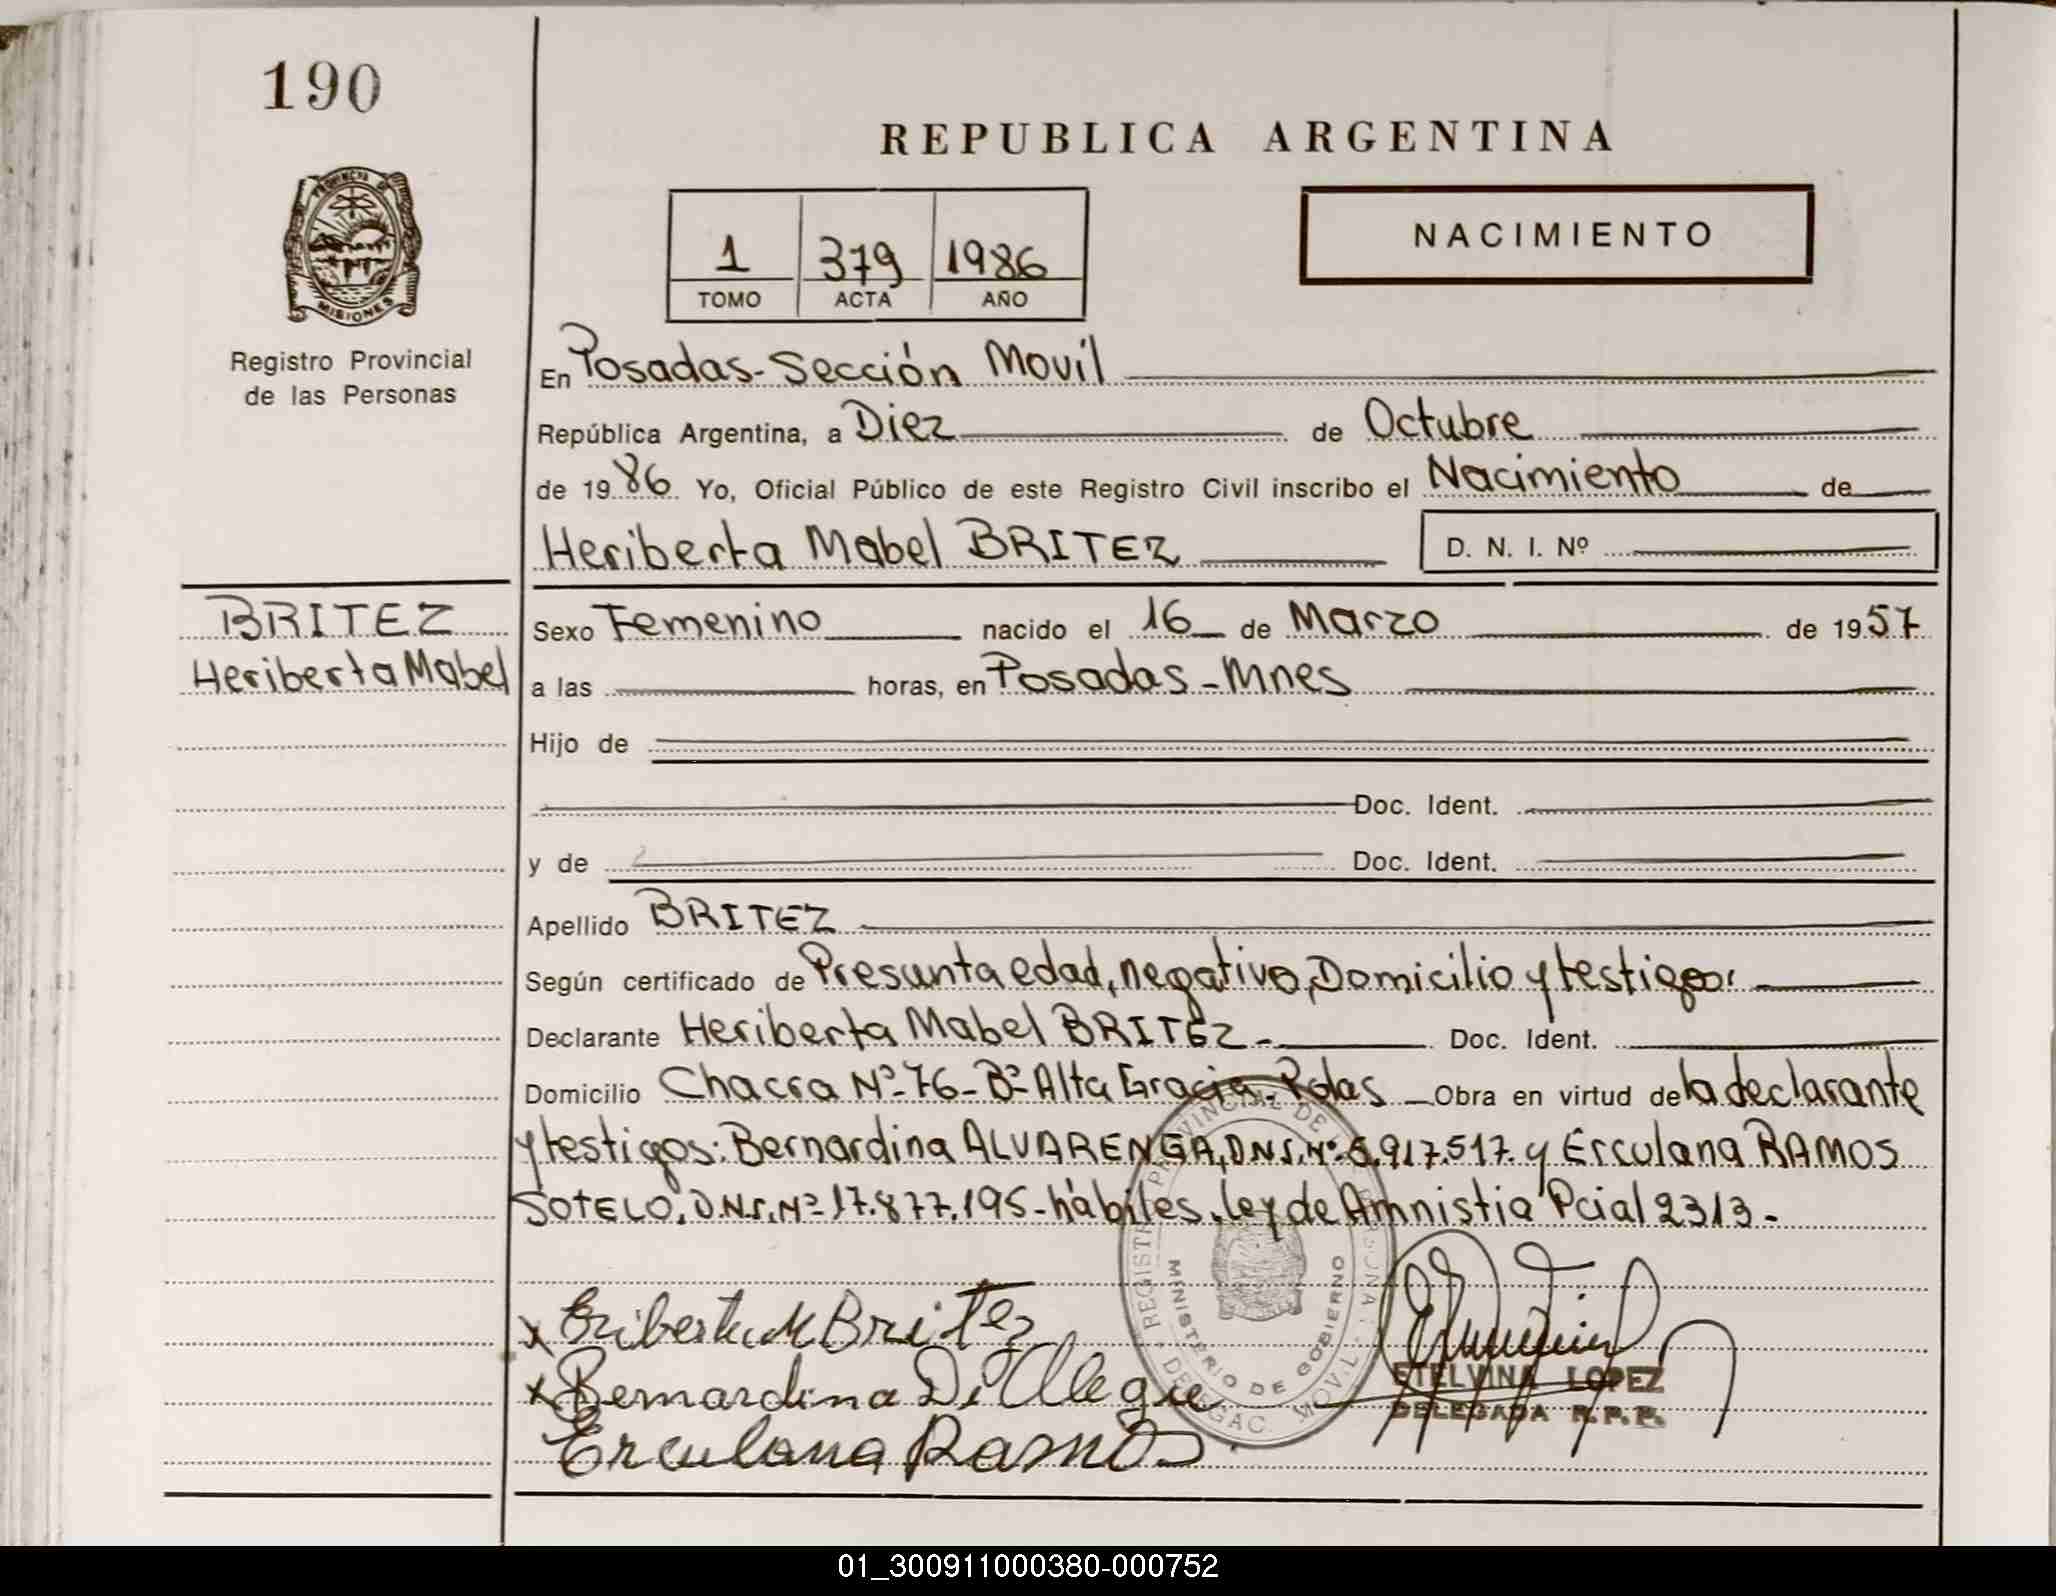 190
REPUBLICA ARGENTINA
PROVINCIA DE
MISIONES
Registro Provincial
de las Personas
1 379 1986
TOMO ACTA AÑO
NACIMIENTO
En Posadas-Sección Movil
República Argentina, a Diez de Octubre
de 1986 Yo, Oficial Público de este Registro Civil inscribo el Nacimiento de
Heriberta Mabel BRITEZ D. N. I. Nº
BRITEZ
Heriberta Mabel
Sexo Femenino nacido el 16 de Marzo de 1957
a las horas, en Posadas - Mnes
Hijo de
Doc. Ident.
y de Doc. Ident.
Apellido BRITEZ
Según certificado de Presunta edad, negativo, Domicilio y testigos:
Declarante Heriberta Mabel BRITEZ - Doc. Ident.
Domicilio Chacra Nº-76-Bº-Alta Gracia-Pdas Obra en virtud de la declarante
y testigos: Bernardina ALVARENGA, D.N.I. Nº 6.917.517. y Erculana RAMOS
SOTELO, D.N.I. Nº-17.877.195-hábiles, ley de Amnistia Pcial 2313-
x Eriberta M Britez
x Bernardina De
Erculana Ramos
REGISTRO PROVINCIAL DE PERSONAS
MINISTERIO DE GOBIERNO
DELEGAC. MOVIL
ESTELVINA LOPEZ
DELEGADA R.P.P.
01_300911000380-000752